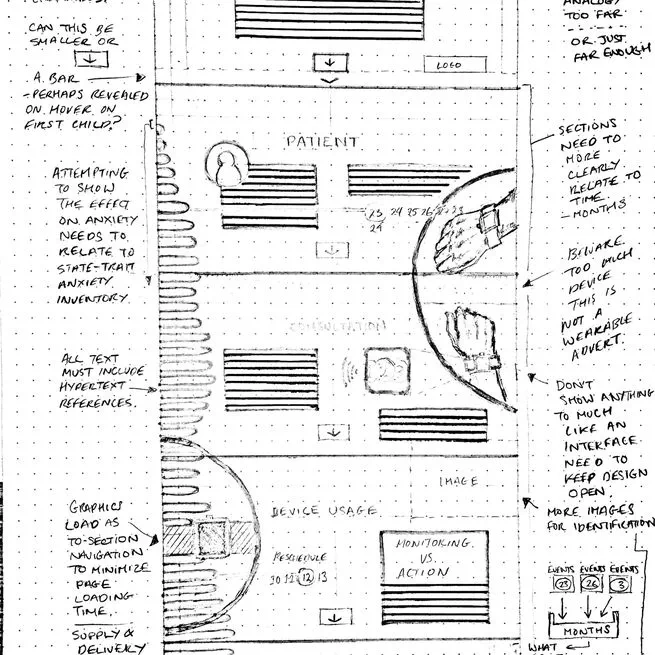 CAN THIS BE
SMALLER OR
A BAR
- PERHAPS REVEALED
ON HOVER ON
FIRST CHILD?
ATTEMPTING
TO SHOW
THE EFFECT
ON ANXIETY
NEEDS TO
RELATE TO
STATE-TRAIT
ANXIETY
INVENTORY
ALL TEXT
MUST INCLUDE
HYPERTEXT
REFERENCES.
GRAPHICS
LOAD AS
TO-SECTION
NAVIGATION
TO MINIMIZE
PAGE
LOADING
TIME.
SUPPLY &
DELIVERY
LOGO
PATIENT
23 24 25 26
29
CONSULTATION
IMAGE
DEVICE USAGE
RESCHEDULE
12 13
MONITORING
VS.
ACTION
ANALOGY
TOO FAR
OR JUST
FAR ENOUGH
SECTIONS
NEED TO
MORE
CLEARLY
RELATE TO
TIME
- MONTHS
BEWARE
TOO MUCH
DEVICE
THIS IS
NOT A
WEARABLE
ADVERT.
DON'T
SHOW ANYTHING
TO MUCH
LIKE AN
INTERFACE
NEED TO
KEEP DESIGN
OPEN.
MORE IMAGES
FOR IDENTIFICATION
EVENTS EVENTS EVENTS
23 26 3
MONTHS
WHAT